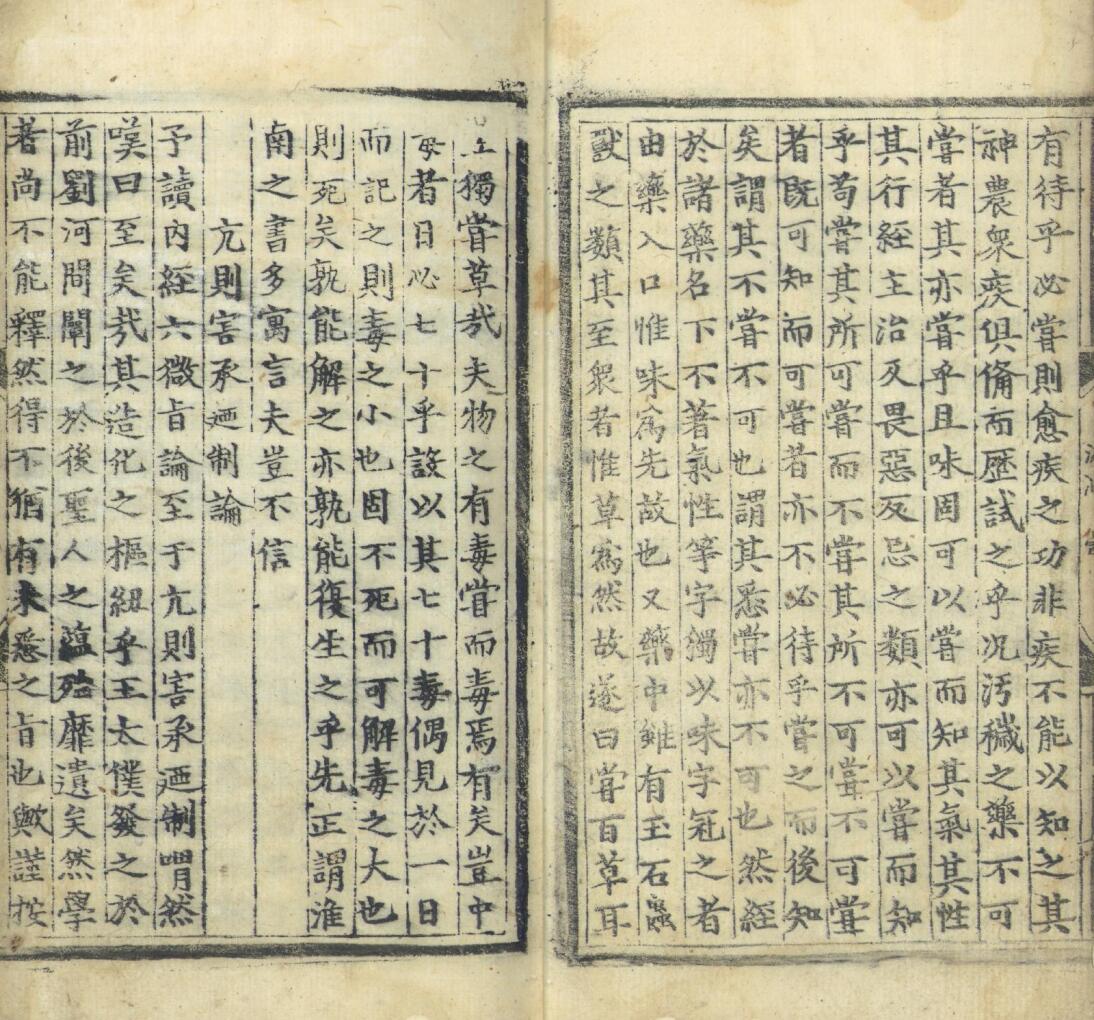 有待乎必嘗則愈疾之功非疾不能以知之其
神農衆疾俱俻而歷試之乎况汚穢之藥不可
嘗者其亦嘗乎且味固可以嘗而知其氣其性
其行經主治及畏惡反忌之類亦可以嘗而知
乎苟嘗其所可嘗而不嘗其所不可嘗不可嘗
者既可知而可嘗者亦不必待乎嘗之而後知
矣謂其不嘗不可也謂其悉嘗亦不可也然經
於諸藥名下不著氣性等字獨以味字冠之者
由藥入口惟味爲先故也又藥中雖有玉石蟲
獸之類其至衆者惟草爲然故遂曰嘗百草耳
豈獨嘗草哉夫物之有毒嘗而毒焉有矣豈中
毒者日必七十乎設以其七十毒偶見於一日
而記之則毒之小也固不死而可解毒之大也
則死矣孰能解之亦孰能復生之乎先正謂淮
南之書多寓言夫豈不信
亢則害承迺制論
予讀內經六微旨論至于亢則害承迺制喟然
嘆曰至矣哉其造化之樞紐乎王太僕發之於
前劉河間闡之於後聖人之蘊殆靡遺矣然學
者尚不能釋然得不猶有未悉之旨也歟謹按